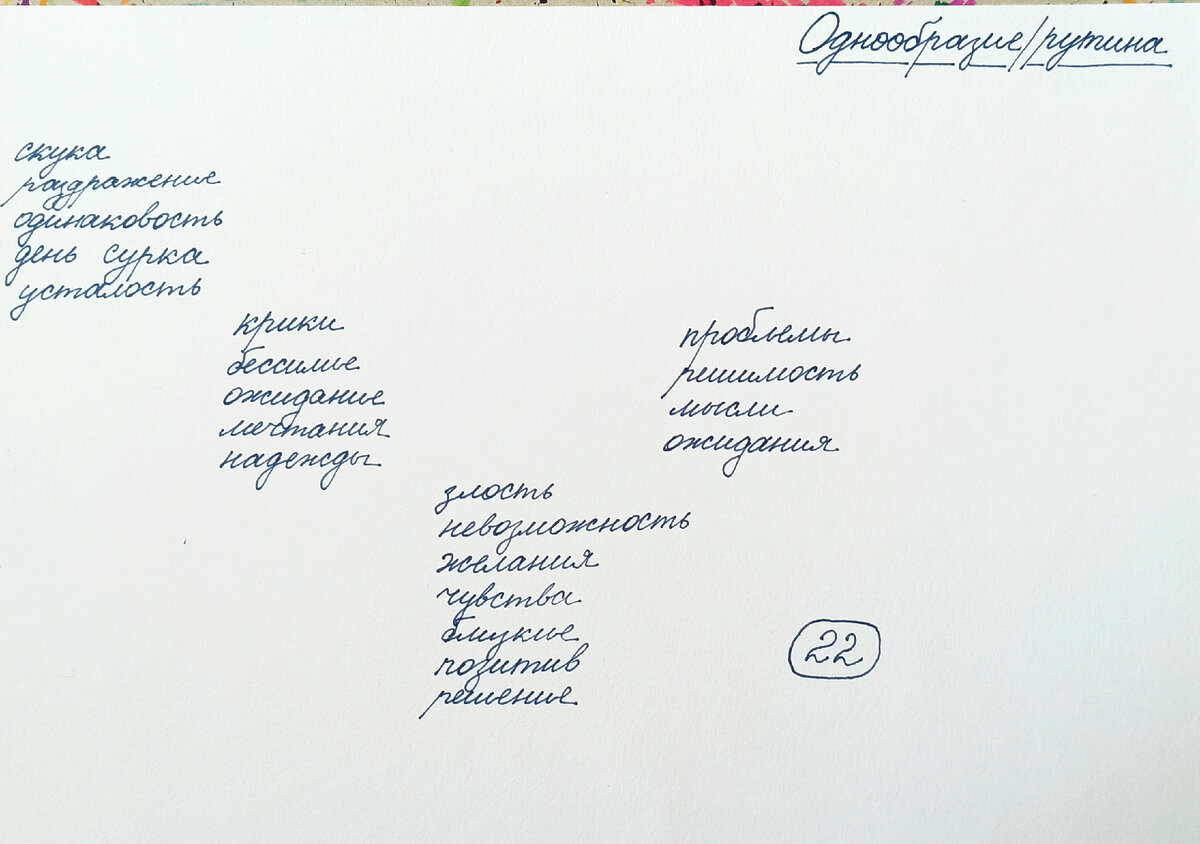 Однообразие/рутина
скука
раздражение
одинаковость
день сурка
усталость
крики
бессилие
ожидание
мечтания
надежды
злость
невозможность
желания
чувства
близкие
позитив
решение
проблемы
решимость
мысли
ожидания
22